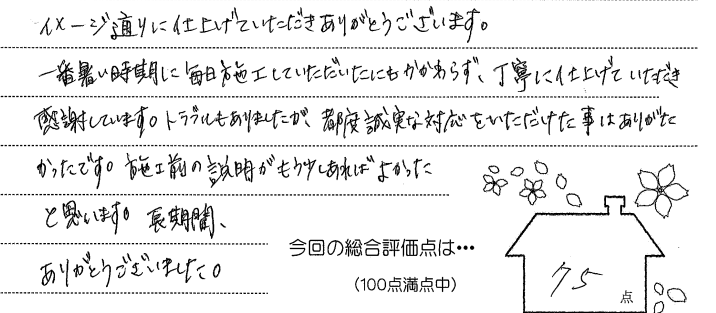 イメージ通りに仕上げていただきありがとうございます。
一番暑い時期に毎日施工していただいたにもかかわらず、丁寧に仕上げていただき
感謝しています。トラブルもありましたが、都度誠実な対応をいただけた事はありがた
かったです。施工前の説明がもう少しあればよかった
と思います。長期間、
ありがとうございました。
今回の総合評価点は…
(100点満点中)
75点